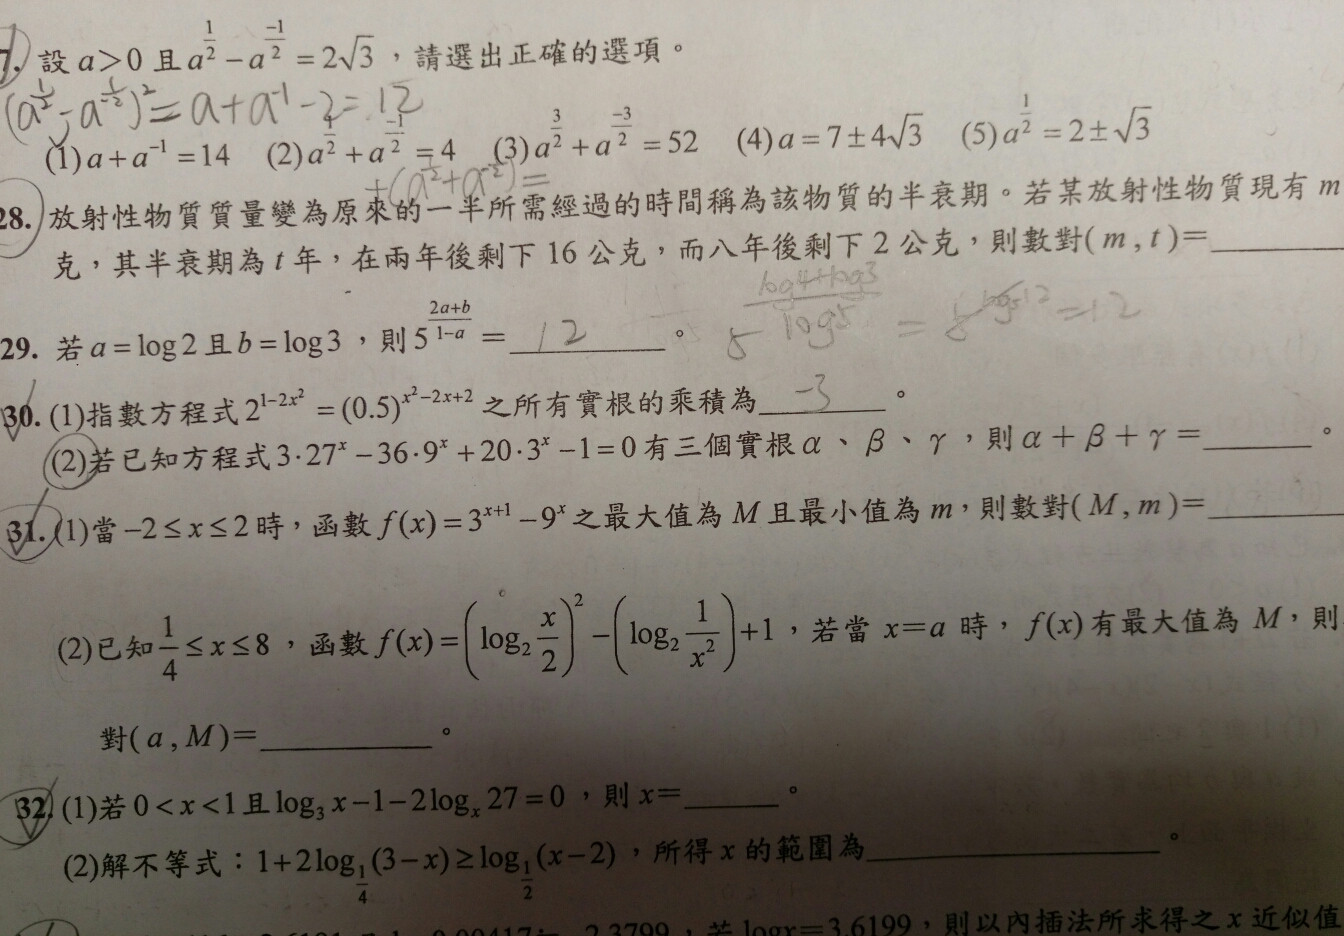 7. 設 a>0 且 a^{1/2} − a^{-1/2} = 2√3 ，請選出正確的選項。
(a^{1/2} - a^{-1/2})² = a + a^{-1} - 2 = 12
(1) a + a^{-1} = 14 (2) a^{1/2} + a^{-1/2} = 4 (3) a^{3/2} + a^{-3/2} = 52 (4) a = 7±4√3 (5) a^{1/2} = 2±√3
28. 放射性物質質量變為原來的一半所需經過的時間稱為該物質的半衰期。若某放射性物質現有 m
克，其半衰期為 t 年，在兩年後剩下 16 公克，而八年後剩下 2 公克，則數對( m , t )=
log4+log3
29. 若 a = log2 且 b = log3 ，則 5^{(2a+b)/(1-a)} = 12 。 5 log5 = 5 12 = 12
30. (1)指數方程式 2^{1-2x²} = (0.5)^{x²-2x+2} 之所有實根的乘積為 -3 。
(2)若已知方程式 3·27^x − 36·9^x + 20·3^x − 1 = 0 有三個實根 α 、 β 、 γ ，則 α + β + γ = 。
31. (1)當 −2 ≤ x ≤ 2 時，函數 f(x) = 3^{x+1} − 9^x 之最大值為 M 且最小值為 m，則數對( M , m )=
(2)已知 1/4 ≤ x ≤ 8 ，函數 f(x) = (log₂ x/2)² − (log₂ 1/x²) + 1 ，若當 x=a 時，f(x) 有最大值為 M，則
對( a , M )= 。
32. (1)若 0 < x < 1 且 log₃ x − 1 − 2log_x 27 = 0 ，則 x= 。
(2)解不等式：1+2log_{1/4}(3−x) ≥ log_{1/2}(x−2) ，所得 x 的範圍為 。
2.3799，若 logx=3.6199，則以內插法所求得之 x 近似值